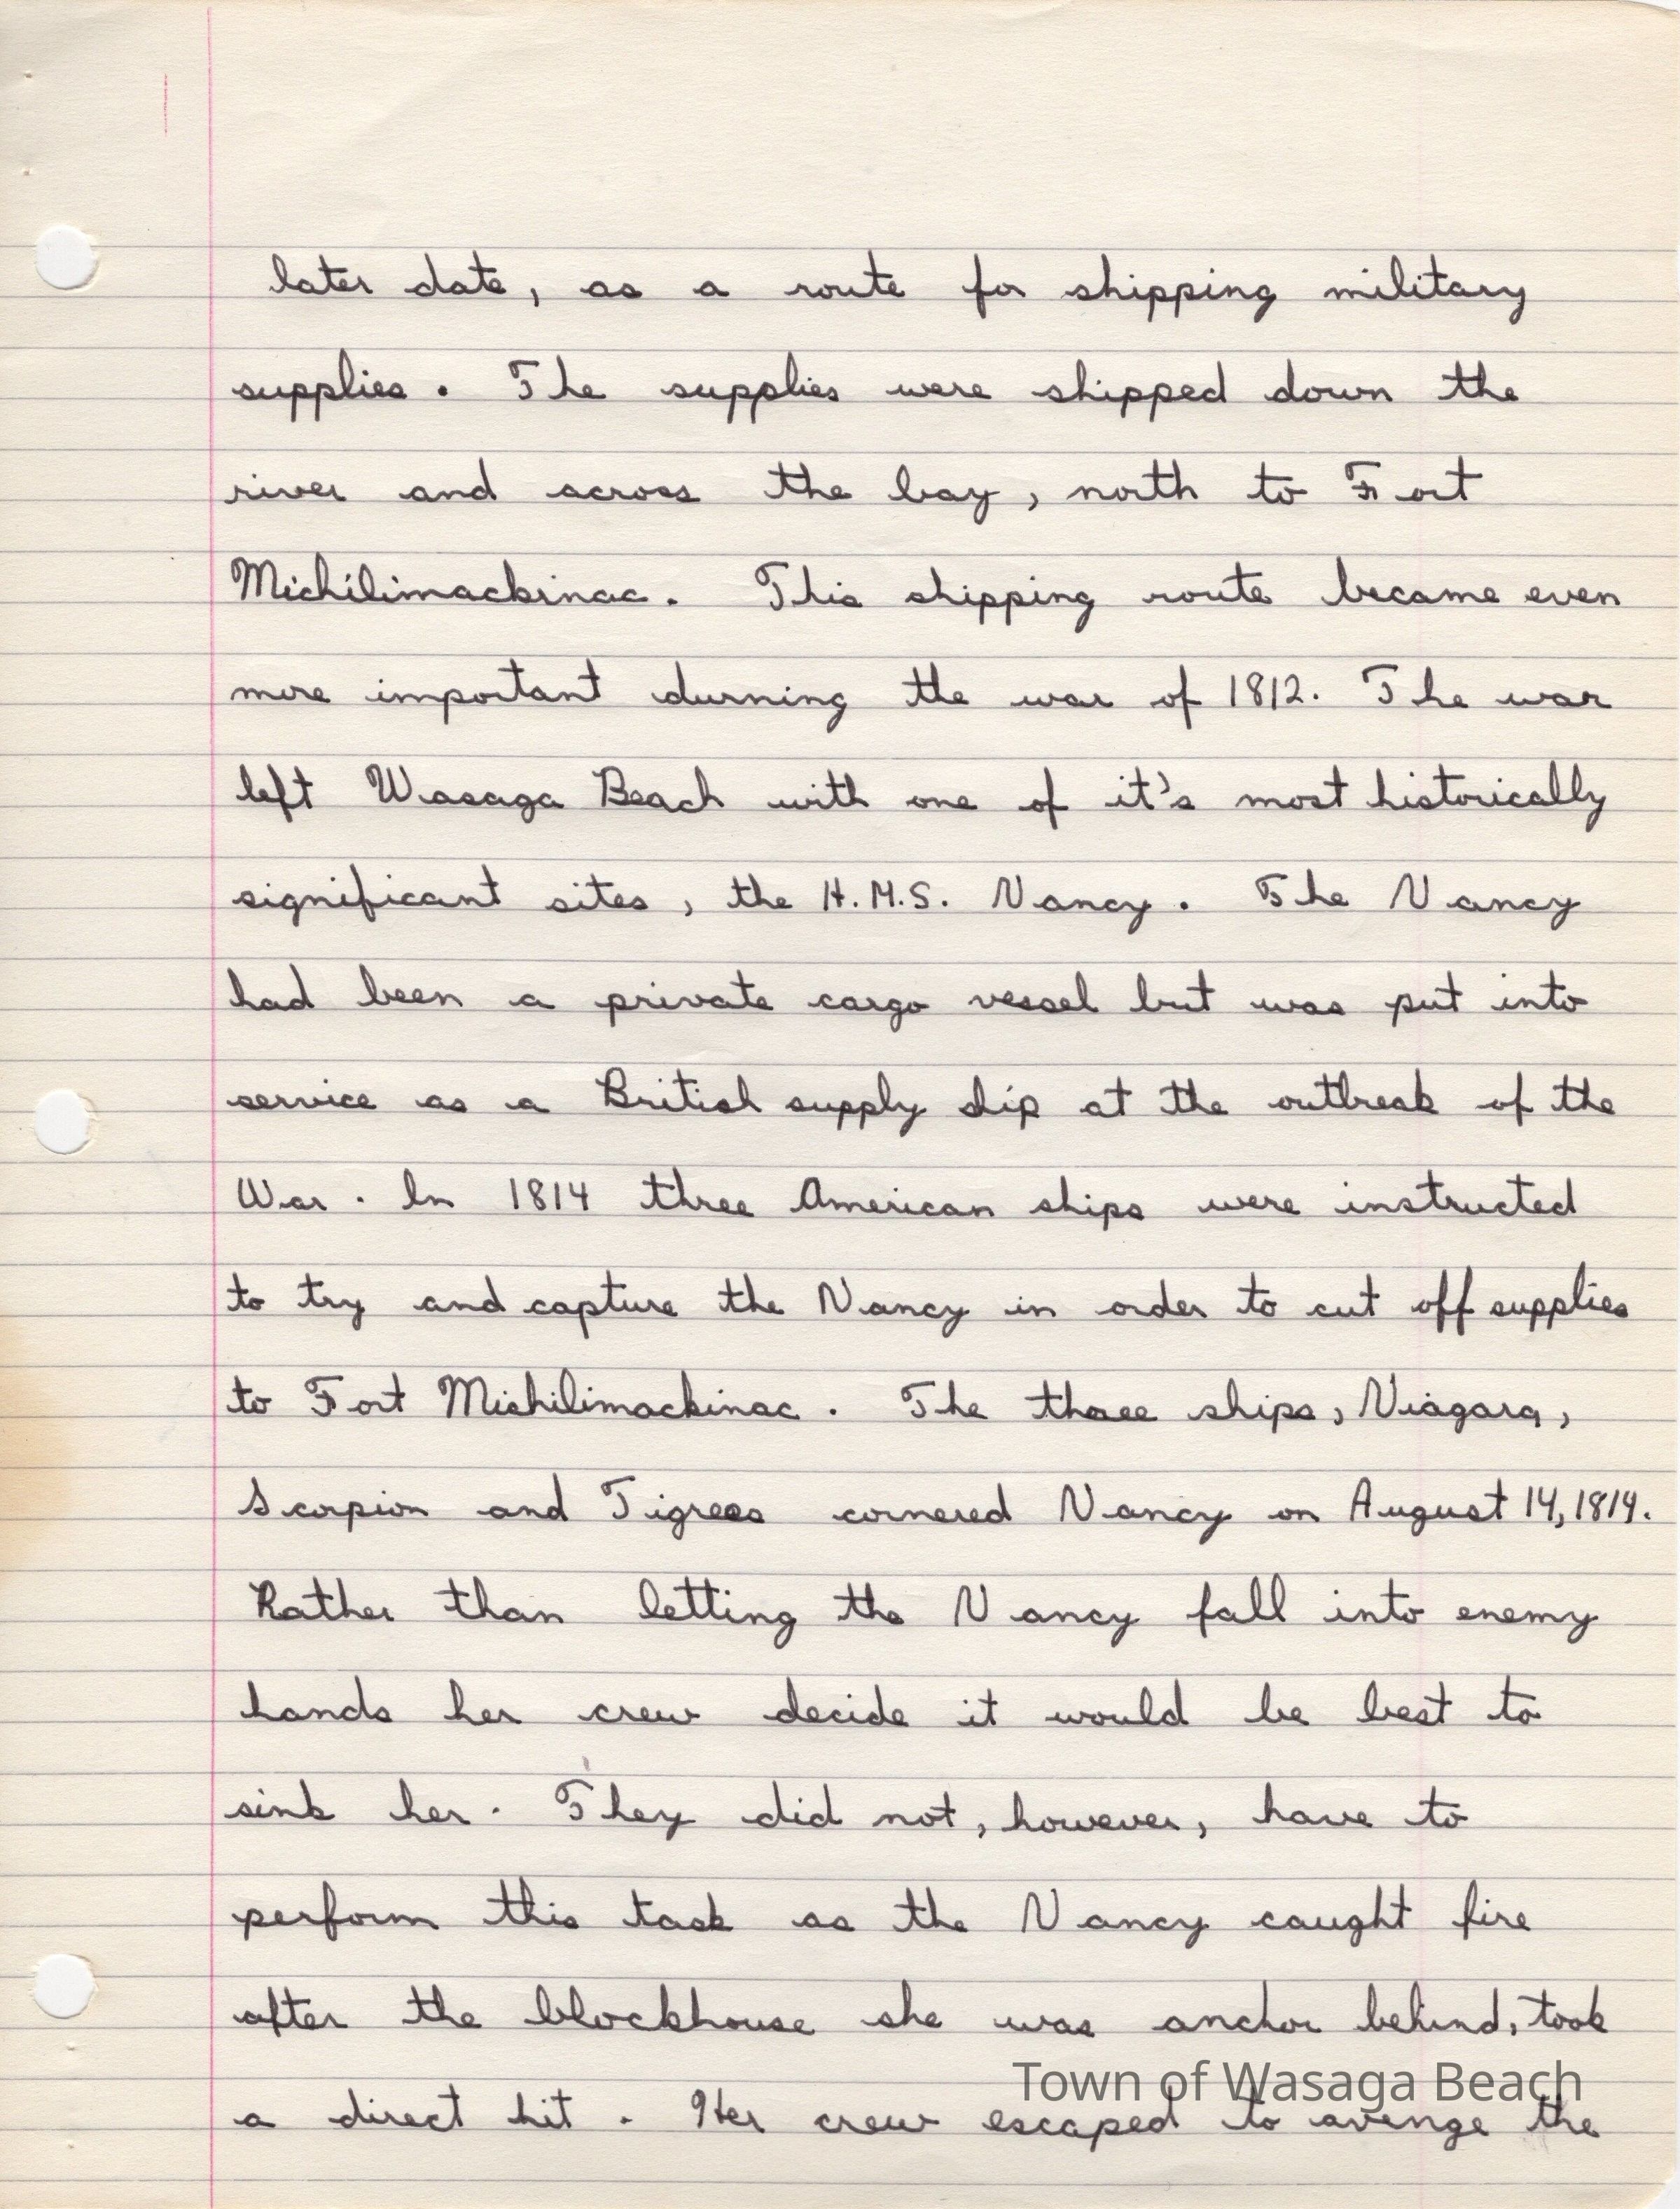 later date, as a route for shipping military
supplies. The supplies were shipped down the
river and across the bay, north to Fort
Michilimackinac. This shipping route became even
more important durning the war of 1812. The war
left Wasaga Beach with one of it's most historically
significant sites, the H.M.S. Nancy. The Nancy
had been a private cargo vessel but was put into
service as a British supply ship at the outbreak of the
War. In 1814 three American ships were instructed
to try and capture the Nancy in order to cut off supplies
to Fort Michilimackinac. The three ships, Niagara,
Scorpion and Tigress cornered Nancy on August 14, 1814.
Rather than letting the Nancy fall into enemy
hands her crew decide it would be best to
sink her. They did not, however, have to
perform this task as the Nancy caught fire
after the blockhouse she was anchor behind, took
Town of Wasaga Beach
a direct hit. Her crew escaped to avenge the